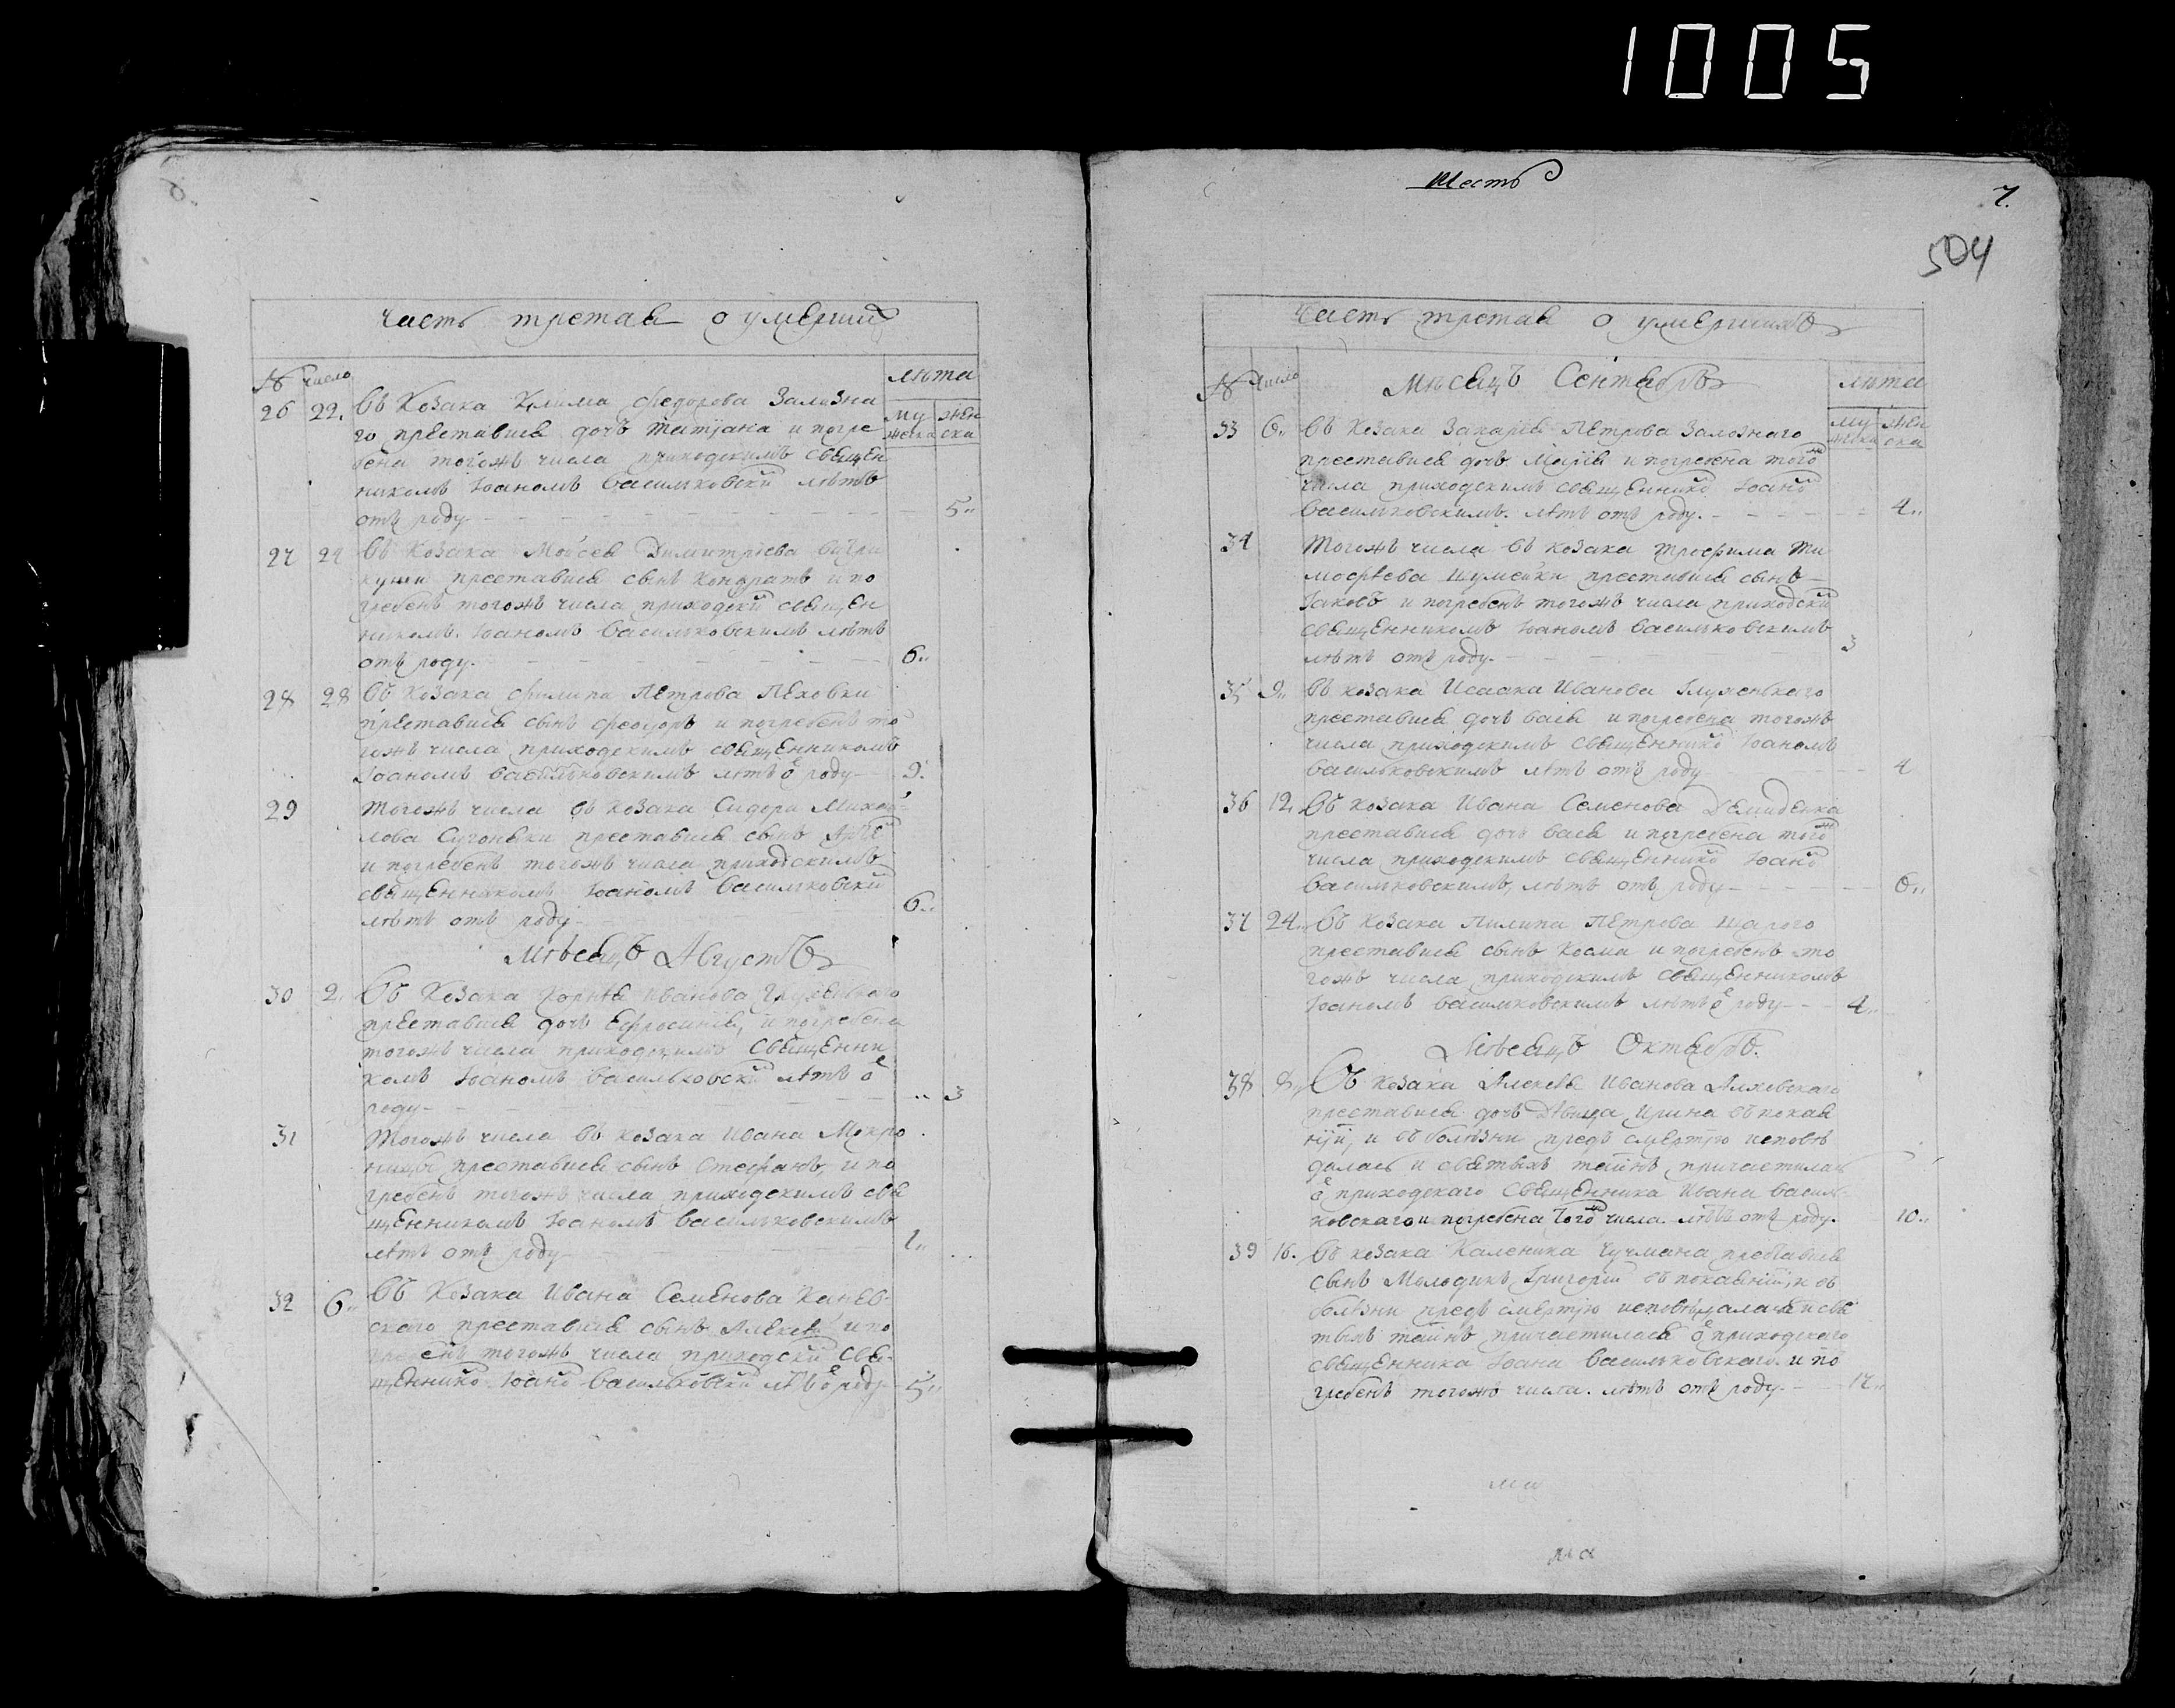 1005
Шесть
7.
504
Часть третая о умерших
№ число лѣта
му жен
жеска ска
26 22. въ Козака Клима Федорова Зализна
го преставися дочъ Татїана и погре
бена тогожъ числа приходскимъ священ
никомъ Іоаномъ Василковски лѣтъ
отъ роду 5
27 24 въ Козака Мойсея Димитрїева
преставися сынъ Кондратъ и по
гребенъ тогожъ числа приходски священ
никомъ Іоаномъ Василковскимъ лѣтъ
отъ роду. 6
28 28 въ Козака Филипа Петрова Пековки
преставися сынъ Феодоръ и погребенъ то
гожъ числа приходскимъ священникомъ
Іоаномъ Василковскимъ лѣтъ о роду 9.
29 Тогожъ числа въ козака Сидора Михай
лова Сугоняки преставися сынъ
и погребенъ тогожъ числа приходскимъ
священникомъ Іоаномъ Василковски
лѣтъ отъ роду 6
Мѣсяцъ Августъ
30 2. Въ Козака Корнѣя Иванова
преставися дочъ Ефросинїя, и погребена
тогожъ числа приходскимъ священни
комъ Іоаномъ Василковски лѣтъ о
роду 3
31 Тогожъ числа въ козака Ивана Мокро
преставися сынъ Стефанъ, и по
гребенъ тогожъ числа приходскимъ свя
щенникомъ Іоаномъ Василковскимъ
лѣтъ отъ роду 1
32 6 Въ Козака Ивана Семенова Канев-
ского преставися сынъ Алексѣй и по
гребенъ тогожъ числа приходски свя-
щеннико Іоано Василковски лѣтъ о роду 5
Часть третая о умершихъ
№ число Мѣсяцъ Сентябрь лѣта
му жен
жеска ска
33 6 Въ Козака Захарїя Петрова Залозного
преставися дочъ Марїя и погребена того ж
числа приходскимъ священнико Іоано
Василковскимъ. лѣтъ отъ роду. 4
34 Тогожъ числа въ козака Трофима Ти
мофѣева Шумейки преставися сынъ
Іаковъ и погребенъ тогожъ числа приходски
священникомъ Іоаномъ Василковскимъ
лѣтъ отъ роду. 3
35 9 Въ козака Исаака Иванова Глуженкаго
преставися дочъ Васа и погребена тогожъ
числа приходскимъ священнико Іоаномъ
Василковскимъ лѣтъ отъ роду 4
36 12. Въ козака Ивана Семенова Демиденка
преставися дочъ Васа и погребена того ж
числа приходскимъ священнико Іоано
Василковскимъ, лѣтъ отъ роду 6
37 24. Въ козака Пилипа Петрова Шарого
преставися сынъ Косма и погребенъ то
гожъ числа приходскимъ священникомъ
Іоаномъ Василковскимъ лѣтъ о роду 4
Мѣсяцъ Октябрь.
38 8 Въ козака Алексѣя Иванова
преставися дочъ Дѣвица Ирина въ покая
нїи, и въ болѣзни предъ смертїю исповѣ
далась и святыхъ таинъ причастилась
о приходскаго священника Ивана Васил
ковскаго и погребена того ж числа лѣтъ отъ роду. 10
39 16. Въ козака Каленика Чучмана преставися
сынъ Молодикъ Григорїй въ покаянїи, и въ
болѣзни предъ смертїю исповѣдалася и свя
тыхъ таинъ причастилася о приходскаго
священника Іоана Василковскаго и по
гребенъ тогожъ числа. лѣтъ отъ роду. 17